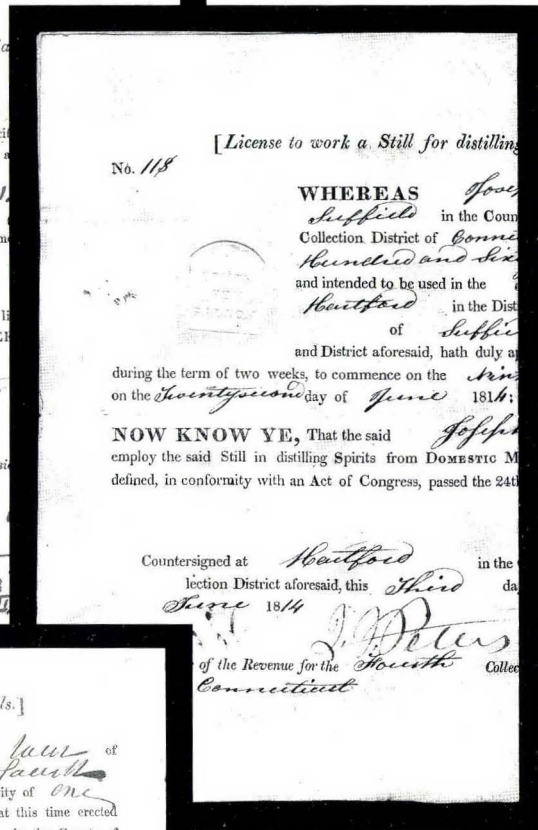 [License to work a Still for distilling
No. 118
WHEREAS Jose
Suffield in the Coun
Collection District of Conne
Hundred and Six
and intended to be used in the
Hartford in the Dist
of Suffie
and District aforesaid, hath duly a
during the term of two weeks, to commence on the Nin
on the Twentysecond day of June 1814;
NOW KNOW YE, That the said Joseph
employ the said Still in distilling Spirits from DOMESTIC M
defined, in conformity with an Act of Congress, passed the 24th
Countersigned at Hartford in the
lection District aforesaid, this Third da
June 1814
Peters
of the Revenue for the Fourth Collec
Connecticut
ls.]
of
Fourth
ity of One
at this time erected